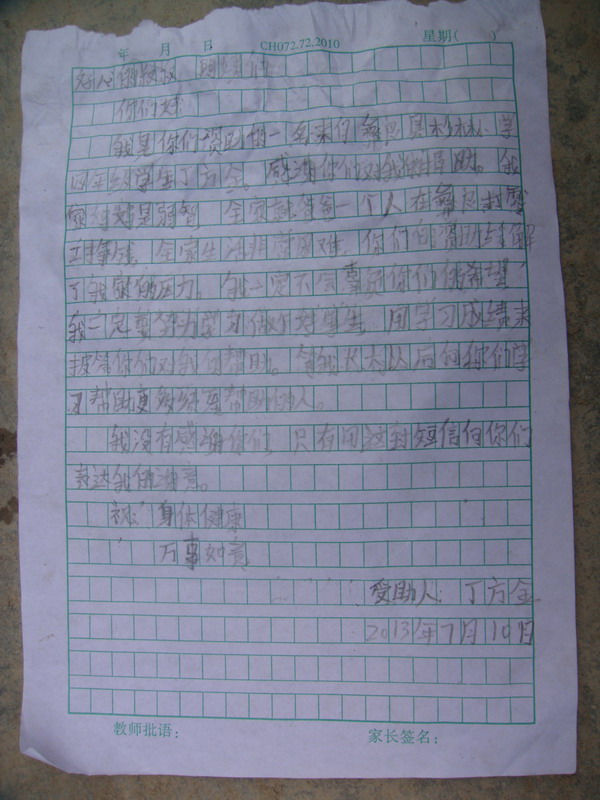 年 月 日 CH072.72.2010 星期( )
好心的叔叔 阿姨们
你们好
我是你们资助的一名来自 学
四年级学生丁方金。感谢你们对我的帮助。我
是弱智 全家就爸爸一个人在
工挣钱 全家生活非常困难 你们的帮助缓解
了我家的压力。我一定不会辜负你们的希望
我一定要努力学习做个好学生 用学习成绩来
报答你们对我的帮助。等我长大以后向你们学
习帮助更多需要帮助的人。
我没有感谢你们 只有用这封短信向你们
表达我的谢意。
祝: 身体健康
万事如意
受助人: 丁方金
2013年7月10日
教师批语: 家长签名: